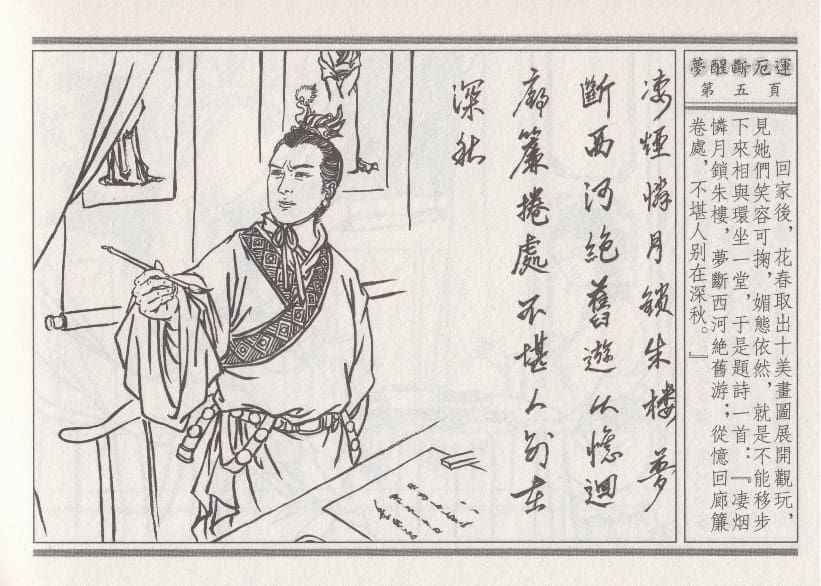 夢醒斷厄運
第五頁
回家後，花春取出十美畫圖展開觀玩，
見她們笑容可掬，媚態依然，就是不能移步
下來相與環坐一堂，于是題詩一首：『凄烟
憐月鎖朱樓，夢斷西河絶舊游；從憶回廊簾
卷處，不堪人别在深秋。』
凄煙憐月鎖朱樓夢
斷西河絶舊遊從憶迴
廊簾捲處不堪人别在
深秋